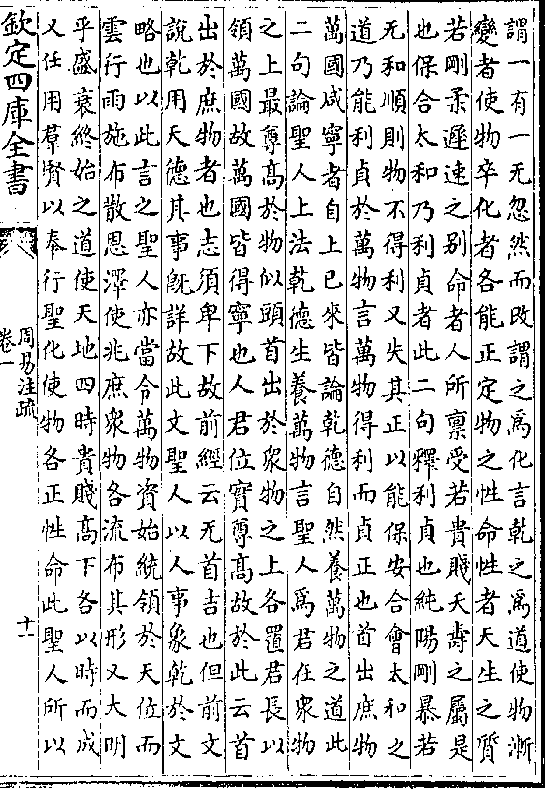 謂一有一无忽然而改謂之為化言乾之為道使物漸
變者使物卒化者各能正定物之性命性者天生之質
若剛柔遲速之別命者人所禀受若貴賤夭壽之屬是
也保合太和乃利貞者此二句釋利貞也純陽剛暴若
无和順則物不得利又失其正以能保安合會太和之
道乃能利貞於萬物言萬物得利而貞正也首出庶物
萬國咸寧者自上已來皆論乾德自然養萬物之道此
二句論聖人上法乾德生養萬物言聖人為君在衆物
之上最尊高於物似頭首出於衆物之上各置君長以
領萬國故萬國皆得寧也人君位實尊高故於此云首
出於庶物者也志須卑下故前經云无首吉也但前文
說乾用天德其事既詳故此文聖人以人事象乾於文
略也以此言之聖人亦當令萬物資始統領於天位而
雲行雨施布散恩澤使兆庶衆物各流布其形又大明
乎盛衰終始之道使天地四時貴賤高下各以時而成
又任用羣賢以奉行聖化使物各正性命此聖人所以
欽定四庫全書
周易注疏
卷一
十一